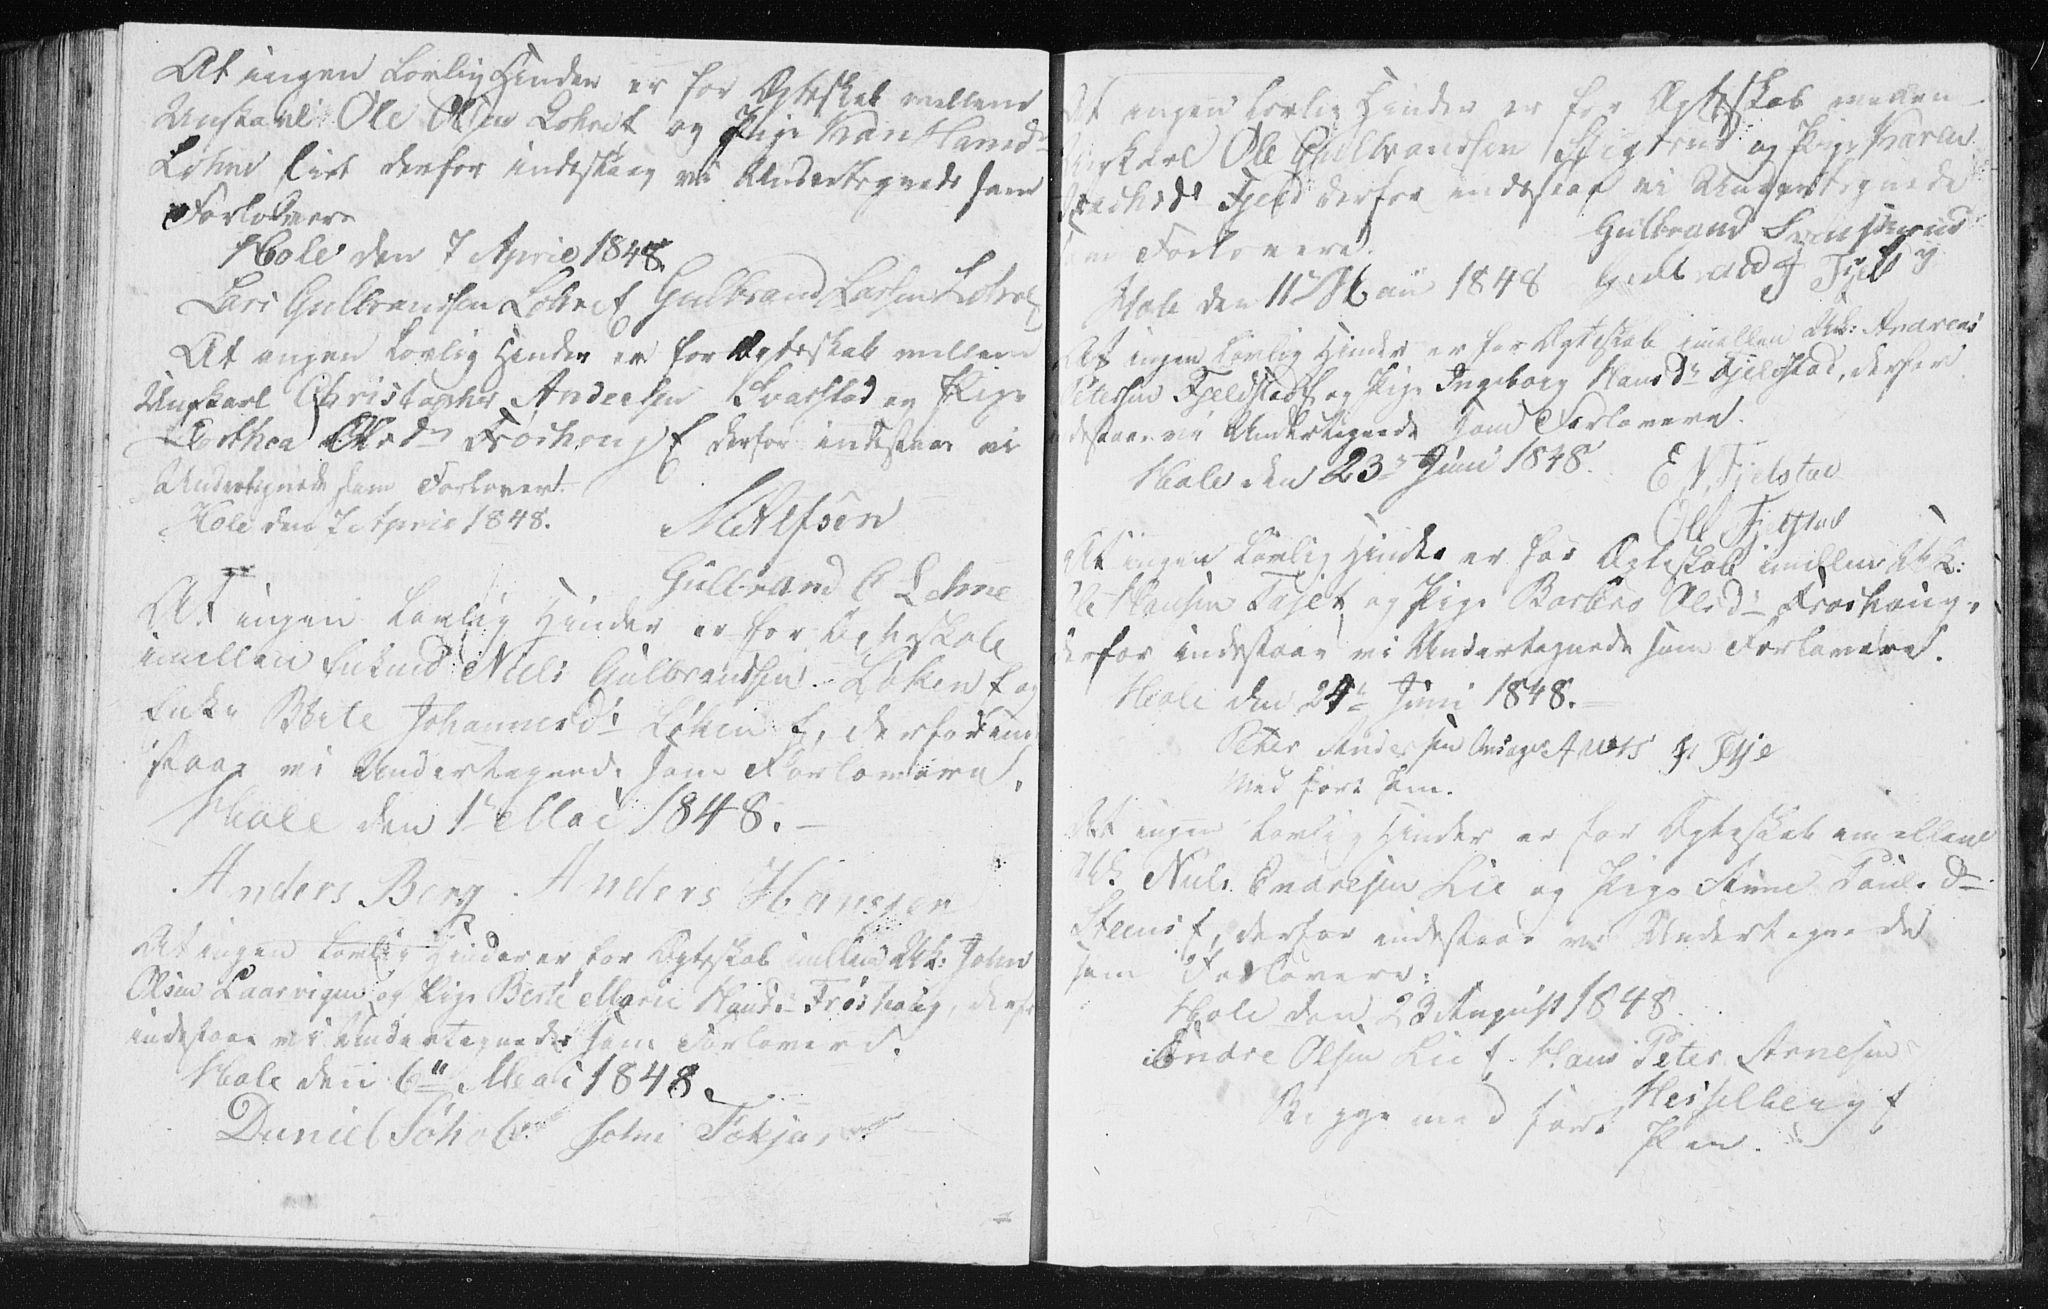 At ingen Lovlig Hinder er for Ægteskab mellem
Ungkarl Ole Olsen Lohne f og Pige Kari Hansd.
Lohne derfor indestaae vi Undertegnede som
Forlovere
Hole den 7 April 1848
Lars Gulbransen Lohne f Gulbrand Larsen Lohne f
At ingen Lovlig Hinder er for Ægteskab mellem
Ungkarl Christopher Andersen Svarstad og Pige
Dorthea Olsd. Froshoug f derfor indestaae vi
Undertegnede som Forlovere
Hole den 7 April 1848.
Gulbrand Lohne
At ingen Lovlig Hinder er for Ægteskab
imellem Enkmd Niels Gulbrandsen Løken f og
Enke Berte Johannesd. Løken f, derfor inde
staae vi Undertegnede som Forlovere.
Hole den 1 Mai 1848.
Anders Berg. Anders Hansen
At ingen Lovlig Hinder er for Ægteskab imellem Uk: John
Olsen Laarvigen og Pige Berte Marie Hansd. Frøshoug, derfor
indestaae vi Undertegnede som Forlovere.
Hole den 6 Mai 1848.
Daniel Søhol

At ingen Lovlig Hinder er for Ægteskab mellem
Ungkarl Ole Gulbrandsen og Pige Karen
Fjeld derfor indestaae vi Undertegnede
som Forlovere.
Gulbrand
Hole den 11 Mai 1848
At ingen Lovlig Hinder er for Ægteskab imellem Uk: Andreas
Petersen Fjeldstad f og Pige Ingeborg Hansd. Fjeldstad, derfor
indestaae vi Undertegnede som Forlovere.
Hole den 23 Juni 1848. E N Fjelstad
Ole Fjelstad
At ingen Lovlig Hinder er for Ægteskab imellem Uk:
Ole Hansen og Pige Barbro Olsd. Froshoug,
derfor indestaae vi Undertegnede som Forlovere.
Hole den 24 Juni 1848.
Peter Andersen
Med ført Pen.
At ingen Lovlig Hinder er for Ægteskab imellem
Uk. Niels Endresen Lie og Pige Anne Paulsd.
Steens f, derfor indestaae vi Undertegnede
som Forlovere:
Hole den 23 August 1848
Endre Olsen Lie f. Hans Peter Arnesen
Hesselberg f
Begge med ført Pen.